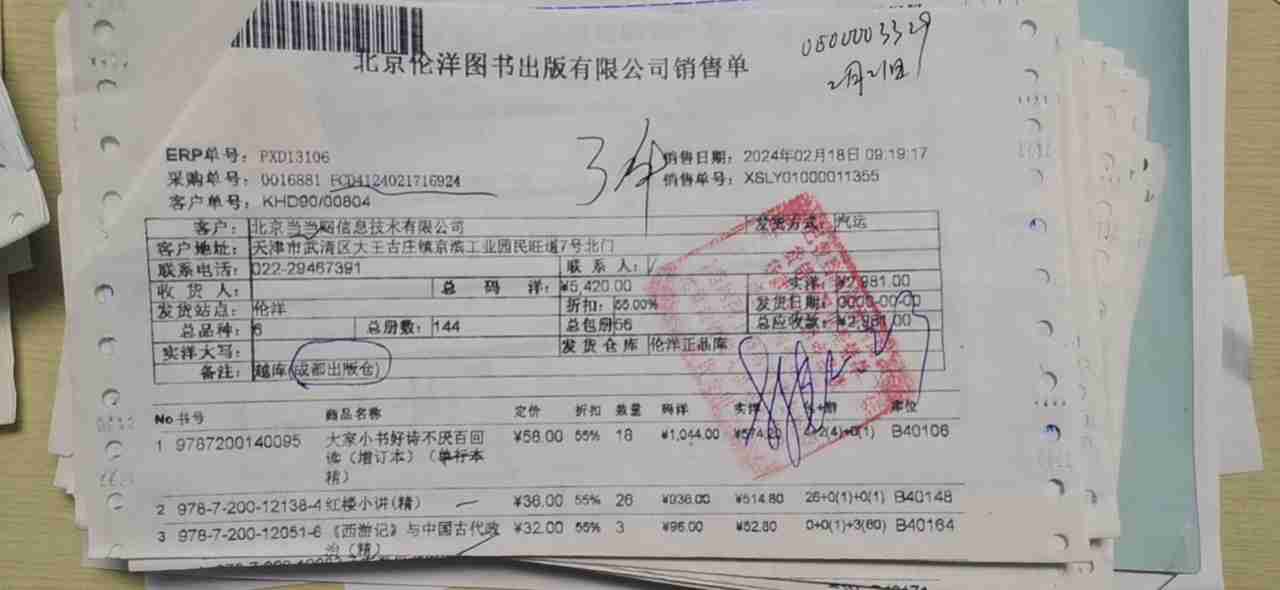 0800003329
2月21日
北京伦洋图书出版有限公司销售单
3件
ERP单号: PXD13106
销售日期: 2024年02月18日 09:19:17
采购单号: 0016881 PCD4124021716924
销售单号: XSLY01000011355
客户单号: KHD90/00804
客户: 北京当当网信息技术有限公司 发货方式: 汽运
客户地址: 天津市武清区大王古庄镇京滨工业园民旺道7号北门
联系电话: 022-29467391 联系人:
收货人: 总码洋: ¥5,420.00 实洋: ¥2,981.00
发货站点: 伦洋 折扣: 55.00% 发货日期: 0000-00-00
总品种: 6 总册数: 144 总包册56 总应收款: ¥2,981.00
实洋大写: 发货仓库 伦洋正品库
备注: 越库(成都出版仓)
No 书号 商品名称 定价 折扣 数量 码洋 实洋 库位
1 9787200140095 大家小书好诗不厌百回 ¥58.00 55% 18 ¥1,044.00 B40106
读(增订本)(单行本
精)
2 978-7-200-12138-4 红楼小讲(精) ¥36.00 55% 26 ¥936.00 ¥514.80 26+0(1)+0(1) B40148
3 978-7-200-12051-6 《西游记》与中国古代政 ¥32.00 55% 3 ¥96.00 ¥52.80 0+0(1)+3(60) B40164
治(精)